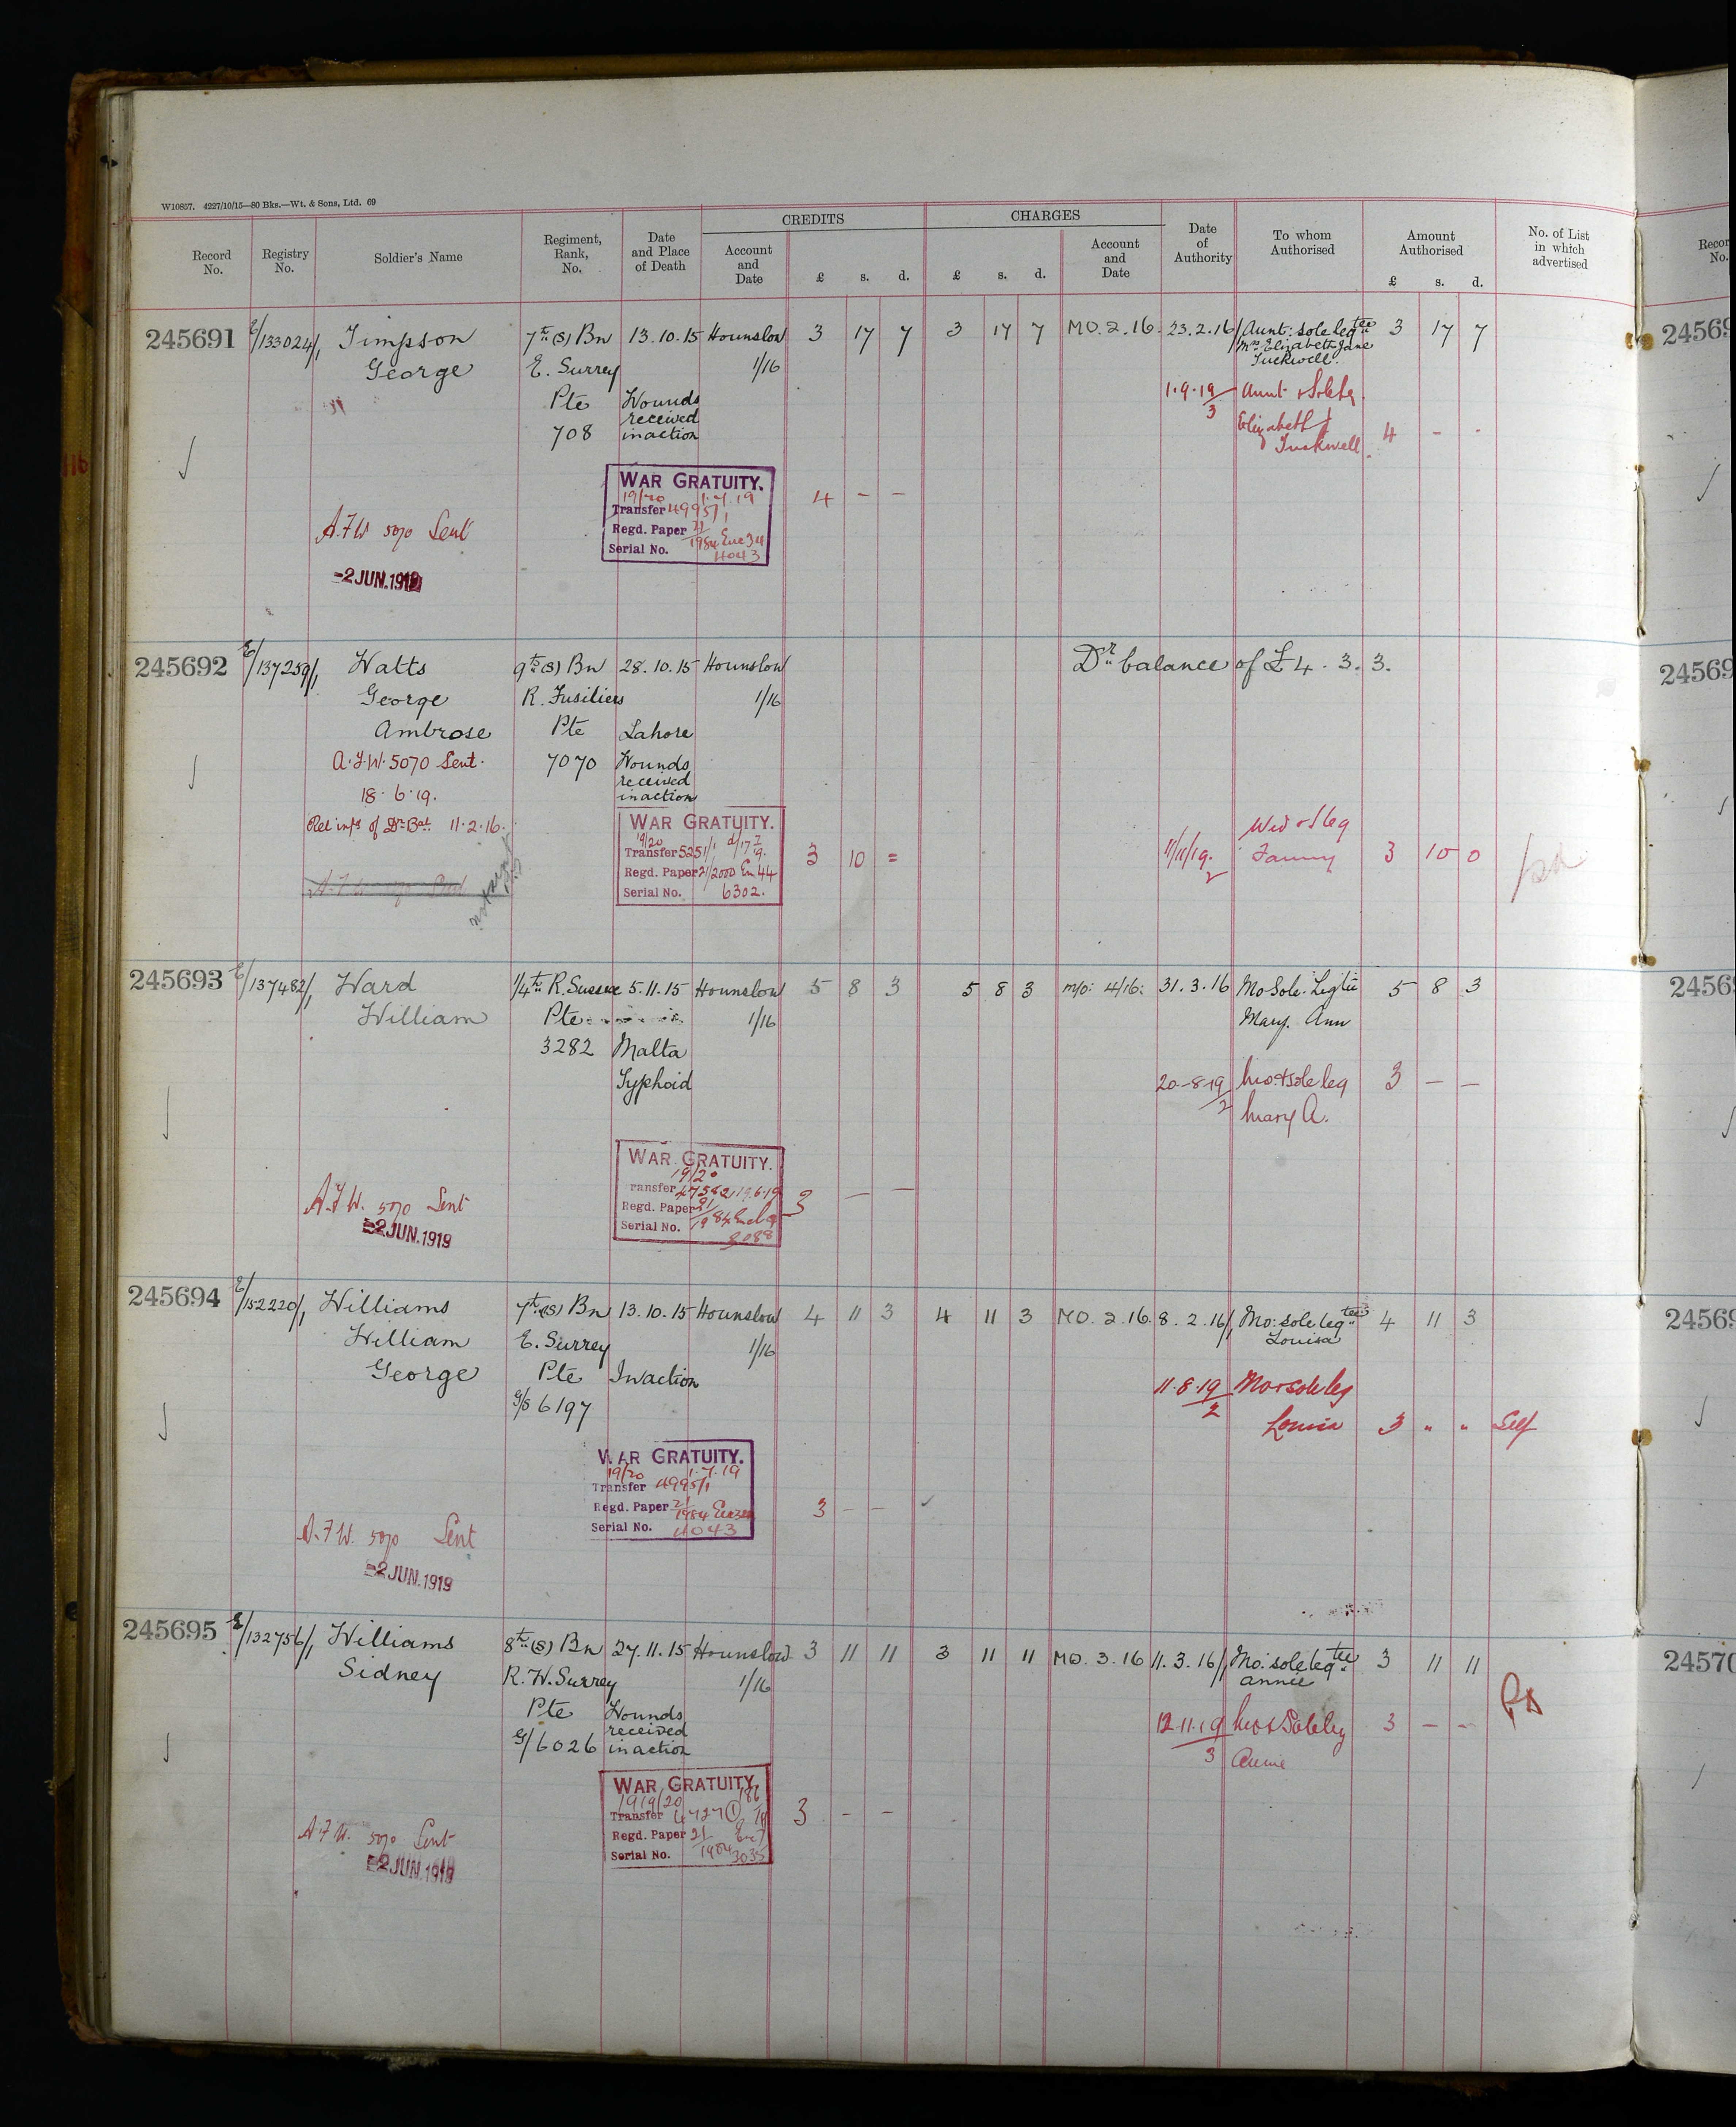 W10857. 4227/10/15—80 Bks.—Wt. & Sons, Ltd. 69
CREDITS CHARGES
Record No. Registry No. Soldier's Name Regiment, Rank, No. Date and Place of Death Account and Date £ s. d. £ s. d. Account and Date Date of Authority To whom Authorised Amount Authorised £ s. d. No. of List in which advertised
245691 E/133024/1 Timpson 7th (S) Bn 13.10.15 Hounslow 3 17 7 3 17 7 MO. 2. 16. 23.2.16/1 Aunt: sole legtee 3 17 7
Mrs Elizabeth Jane
Tuckwell.
George E. Surrey 1/16
Pte Wounds 1.9.19/3 Aunt & Sole Leg
received
708 in action Elizabeth J 4 - -
Tuckwell.
WAR GRATUITY.
19/20 1.7.19 4 - -
Transfer 4995/1
Regd. Paper 21/1984 Enc 34
Serial No. 4043
A.F.W 5070 Sent
-2 JUN. 1919
245692 E/137259/1 Watts 9th (S) Bn 28.10.15 Hounslow Dr balance of £4. 3. 3.
George R. Fusiliers 1/16
Ambrose Pte Lahore
A.F.W. 5070 Sent. 7070 Wounds
received
18.6.19. in action
Rel infd of Dr Bal. 11.2.16.
WAR GRATUITY.
19/20
Transfer 5251/1 d/17 7/19. 3 10 = 11/11/19./2 Wid & S leg
Fanny 3 10 0
Regd. Paper 21/2000 En 44
Serial No. 6302.
245693 E/137482/1 Ward 1/4th R. Sussex 5.11.15 Hounslow 5 8 3 5 8 3 m/o: 4/16: 31.3.16 Mo Sole Legtee 5 8 3
William Pte 1/16 Mary. Ann
3282 Malta
Typhoid 20-8-19/2 Mo. & sole leg 3 — —
Mary A.
WAR GRATUITY.
19/20
Transfer 4758 19.6.19 3 — —
Regd. Paper 21/1984
Serial No. 2088
A.F.W. 5070 Sent
-2 JUN. 1919
245694 E/152220/1 Williams 7th (S) Bn 13.10.15 Hounslow 4 11 3 4 11 3 MO. 2. 16. 8. 2. 16/1 Mo: sole legtee 4 11 3
Louisa
William E. Surrey 1/16
George Pte In action 11.8.19/2 Mo & sole leg
G/S 6197 Louisa 3 " " Self
WAR GRATUITY.
19/20 1.7.19
Transfer 4995/1
Regd. Paper 21/1984 3 - -
Serial No. 4043
A.F.W. 5070 Sent
-2 JUN. 1919
245695 E/132756/1 Williams 8th (S) Bn 27.11.15 Hounslow 3 11 11 3 11 11 MO. 3. 16 11. 3. 16/1 Mo: sole legtee 3 11 11
Annie
Sidney R. W. Surrey 1/16
Pte Wounds 12.11.19/3 Mo & Sole leg 3 — —
received
G/6026 in action Annie
WAR GRATUITY.
1919/20
Transfer 3 - -
Regd. Paper 21/1984
Serial No. 3035
A.F.W. 5070 Sent
-2 JUN. 1919